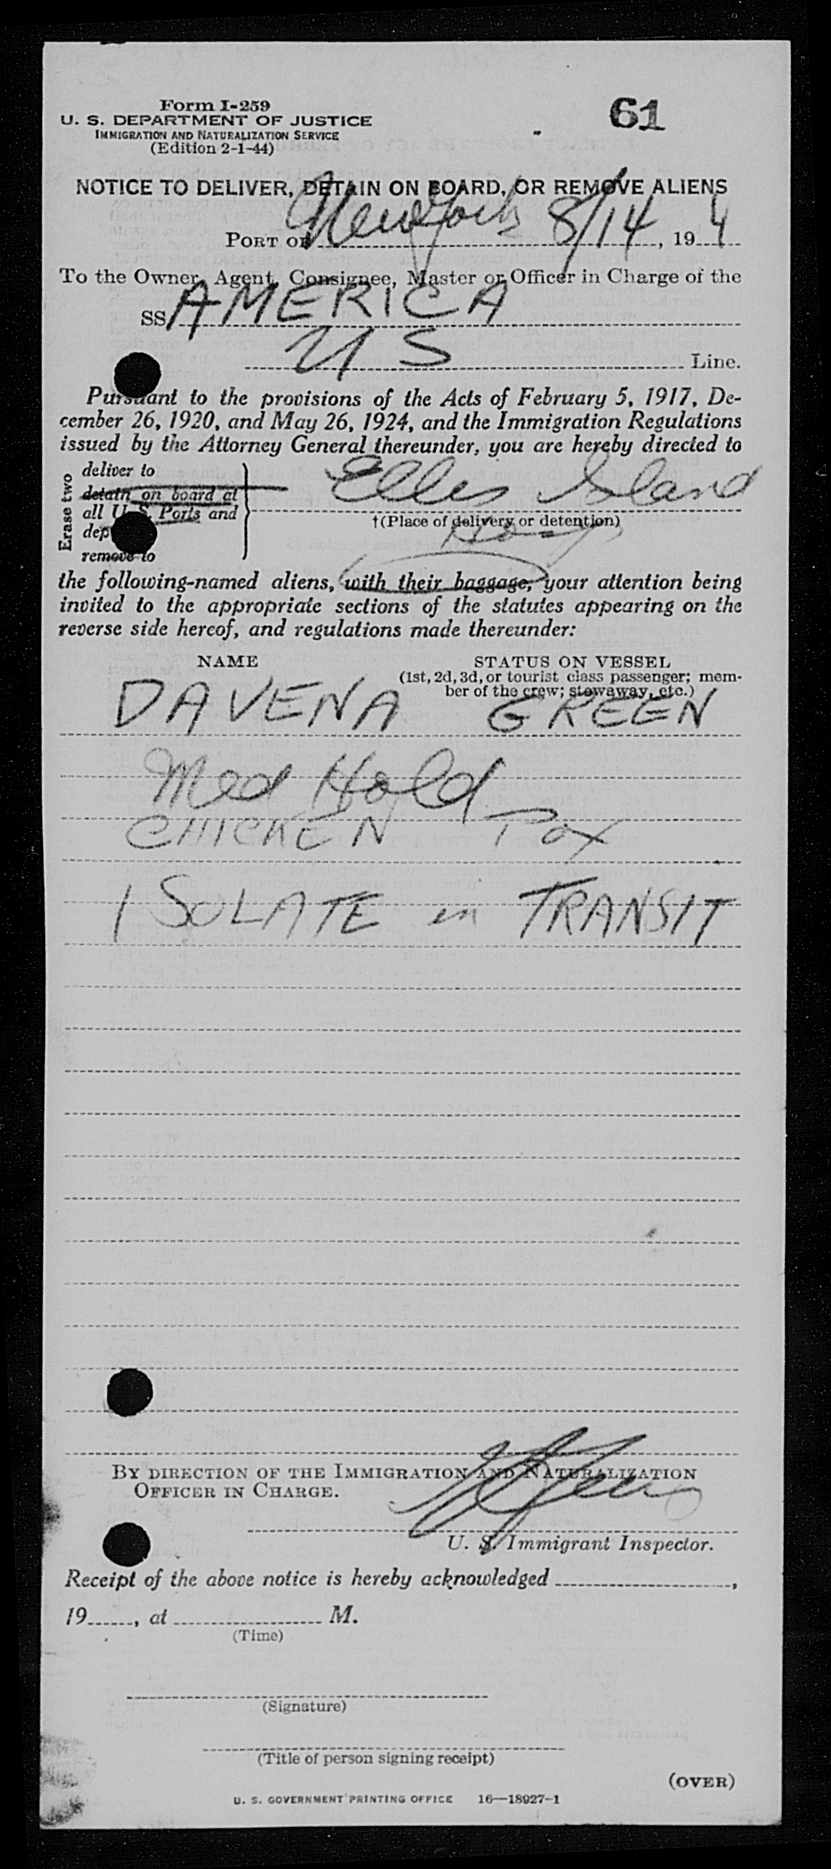 Form I-259
61
U. S. DEPARTMENT OF JUSTICE
IMMIGRATION AND NATURALIZATION SERVICE
(Edition 2-1-44)
NOTICE TO DELIVER, DETAIN ON BOARD, OR REMOVE ALIENS
PORT OF New York 8/14, 194
To the Owner, Agent, Consignee, Master or Officer in Charge of the
SS AMERICA
US Line.
Pursuant to the provisions of the Acts of February 5, 1917, De-
cember 26, 1920, and May 26, 1924, and the Immigration Regulations
issued by the Attorney General thereunder, you are hereby directed to
Erase two
deliver to
detain on board at
all U. S. Ports and
dep
remove to
Ellis Island
†(Place of delivery or detention)
Hosp
the following-named aliens, with their baggage, your attention being
invited to the appropriate sections of the statutes appearing on the
reverse side hereof, and regulations made thereunder:
NAME STATUS ON VESSEL
(1st, 2d, 3d, or tourist class passenger; mem-
ber of the crew; stowaway, etc.)
DAVENA GREEN
Med Hold
CHICKEN Pox
ISOLATE in TRANSIT
BY DIRECTION OF THE IMMIGRATION AND NATURALIZATION
OFFICER IN CHARGE.
U. S. Immigrant Inspector.
Receipt of the above notice is hereby acknowledged ,
19 , at M.
(Time)
(Signature)
(Title of person signing receipt)
(OVER)
U. S. GOVERNMENT PRINTING OFFICE 16—18927-1